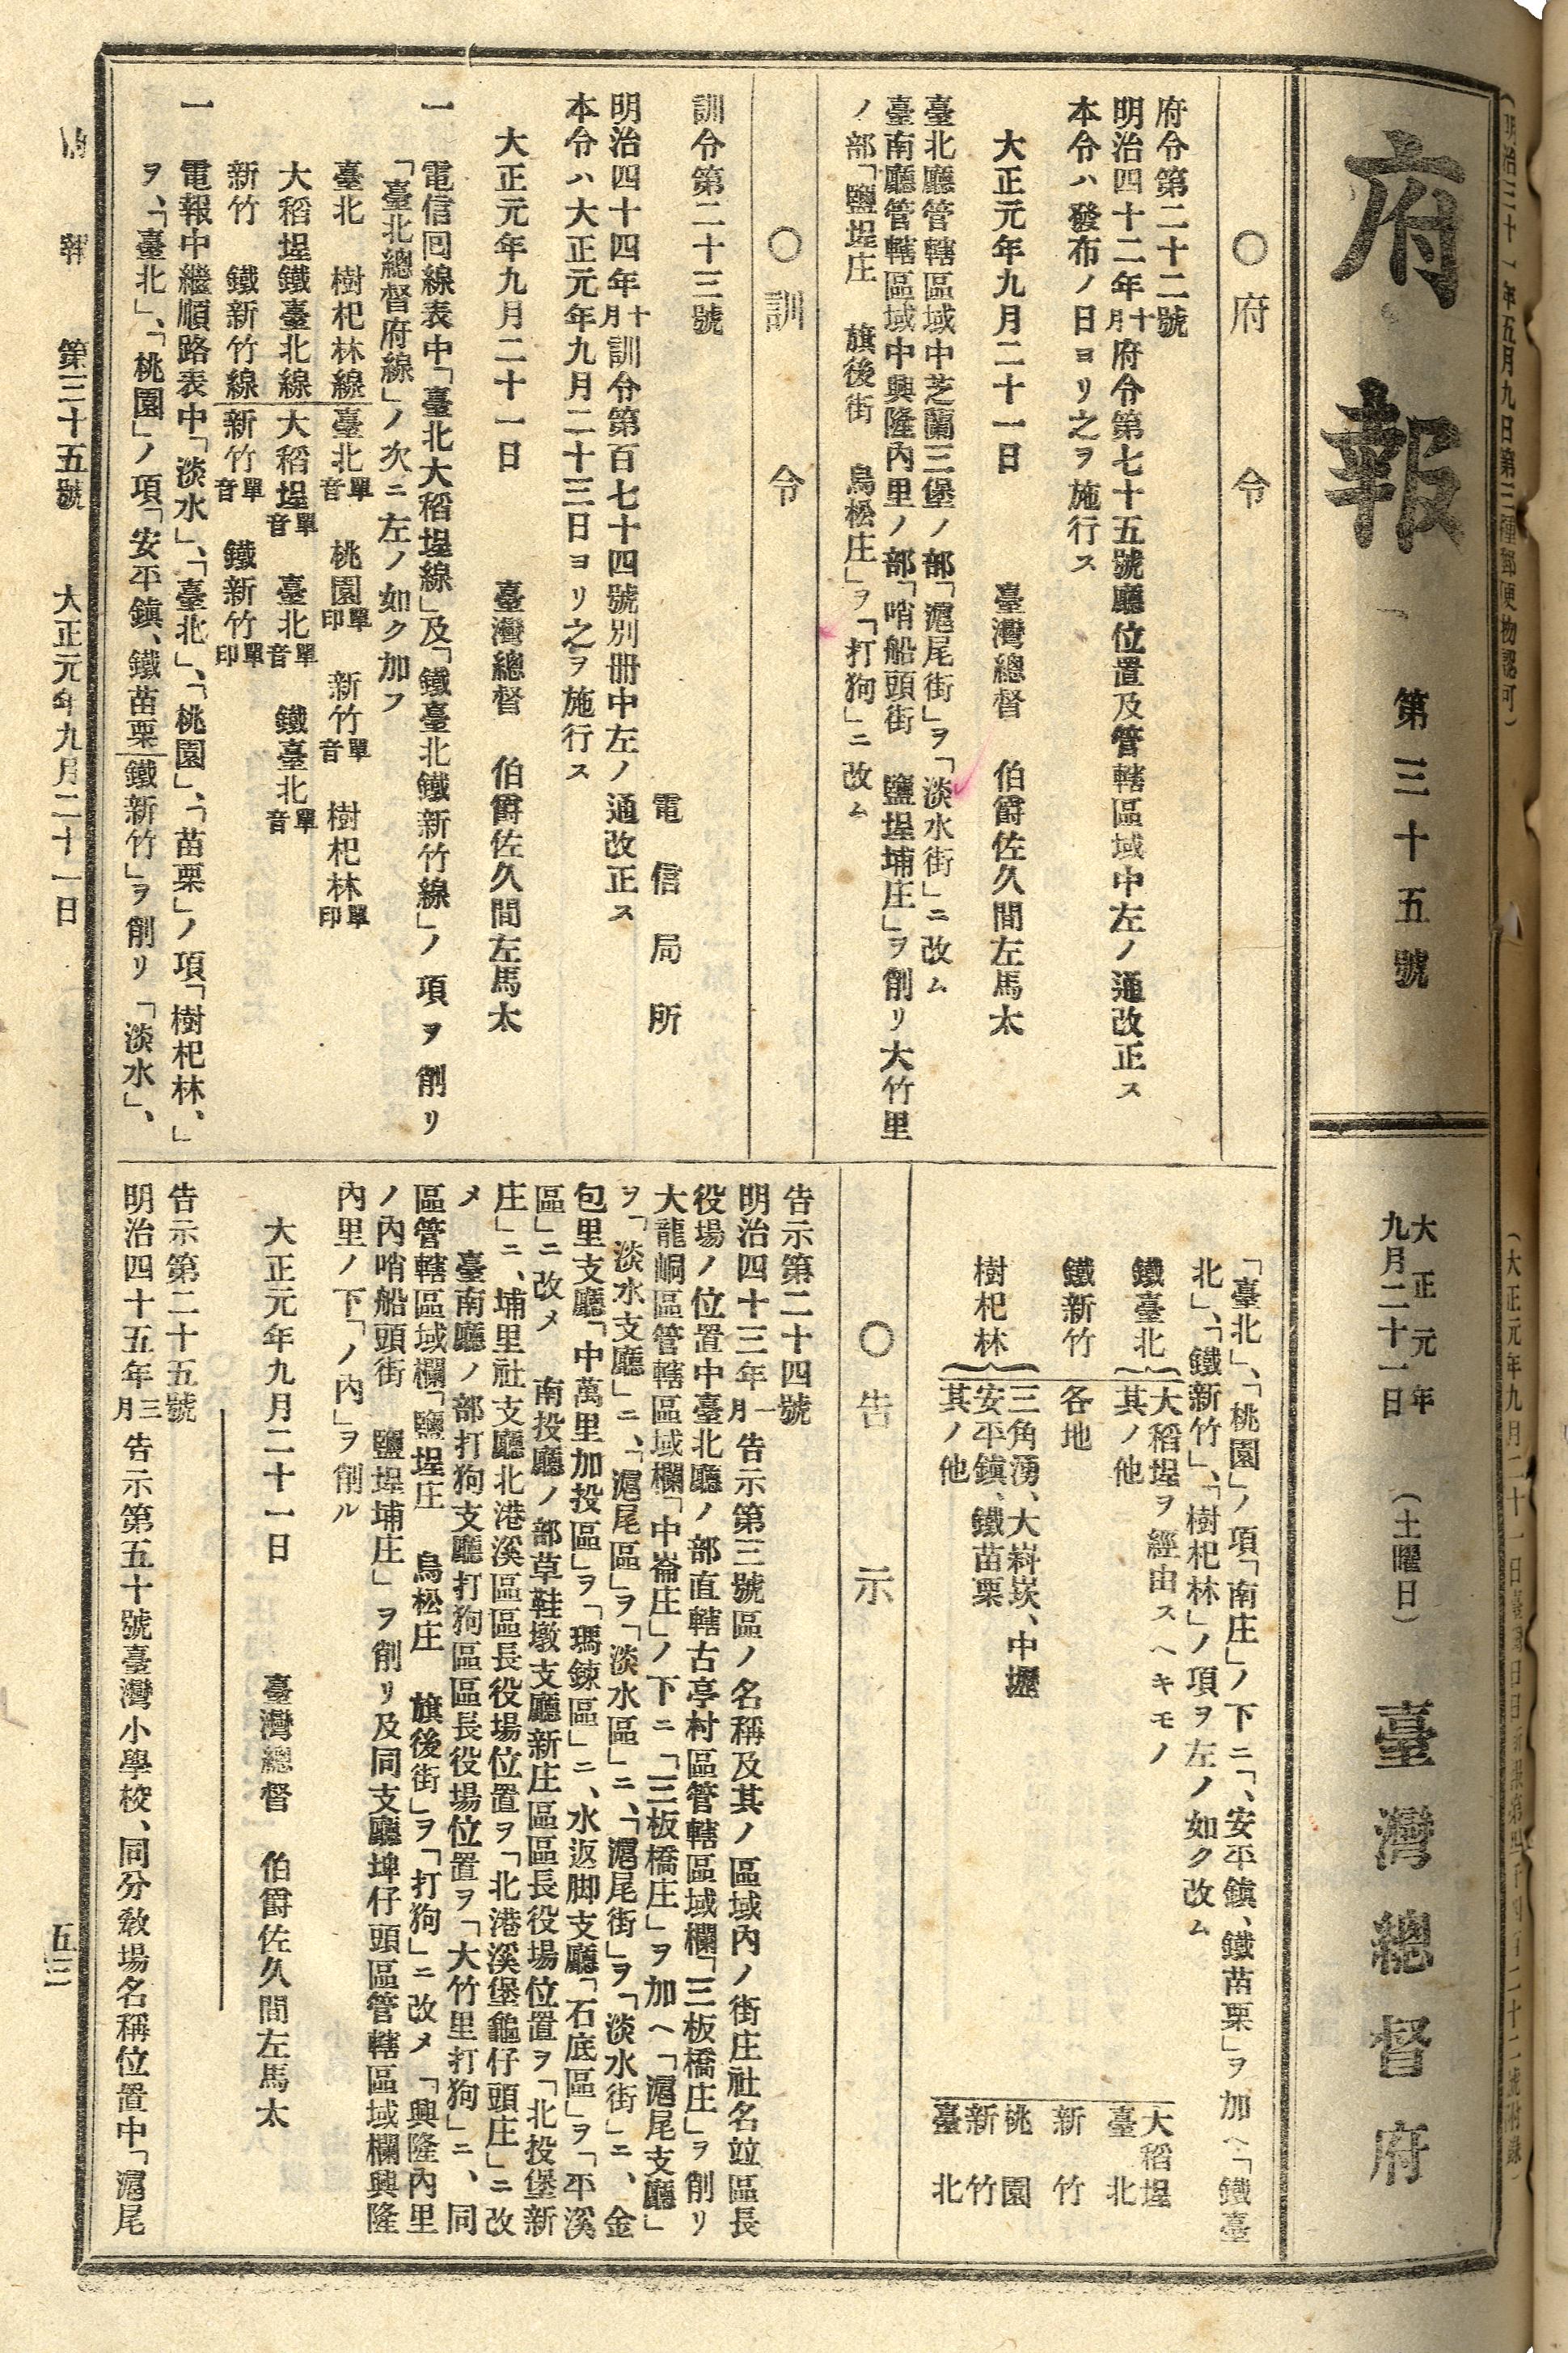 (明治三十一年五月九日第三種郵便物認可)
府報
第三十五號
大正元年
九月二十一日
(土曜日)
臺灣總督府
○府令
府令第二十二號
明治四十二年十月府令第七十五號廳位置及管轄區域中左ノ通改正ス
本令ハ發布ノ日ヨリ之ヲ施行ス
大正元年九月二十一日 臺灣總督 伯爵佐久間左馬太
臺北廳管轄區域中芝蘭三堡ノ部「滬尾街」ヲ「淡水街」ニ改ム
臺南廳管轄區域中興隆內里ノ部「哨船頭街 鹽埕埔庄」ヲ削リ大竹里
ノ部「鹽埕庄 旗後街 烏松庄」ヲ「打狗」ニ改ム
○訓令
訓令第二十三號
電信局所
明治四十四年十月訓令第百七十四號別冊中左ノ通改正ス
本令ハ大正元年九月二十三日ヨリ之ヲ施行ス
大正元年九月二十一日 臺灣總督 伯爵佐久間左馬太
一 電信回線表中「臺北大稻埕線」及「鐵臺北鐵新竹線」ノ項ヲ削リ
「臺北總督府線」ノ次ニ左ノ如ク加フ
臺北 樹杞林線 臺北單音 桃園單印 新竹單音 樹杞林單印
大稻埕鐵臺北線 大稻埕單音 臺北單音 鐵臺北單音
新竹 鐵新竹線 新竹單音 鐵新竹單印
一 電報中繼順路表中「淡水」、「臺北」、「桃園」、「苗栗」ノ項「樹杞林、」
ヲ、「臺北」、「桃園」ノ項「安平鎮、鐵苗栗 鐵新竹」ヲ削リ「淡水」、
「臺北」、「桃園」ノ項「南庄」ノ下ニ「、安平鎮、鐵苗栗」ヲ加ヘ「鐵臺
北」、「鐵新竹」、「樹杞林」ノ項ヲ左ノ如ク改ム
鐵臺北 大稻埕ヲ經由スヘキモノ 大稻埕
其ノ他 臺北
鐵新竹 各地 新竹
樹杞林 三角湧、大嵙崁、中壢 桃園
安平鎮、鐵苗栗 新竹
其ノ他 臺北
○告示
告示第二十四號
明治四十三年一月告示第三號區ノ名稱及其ノ區域內ノ街庄社名竝區長
役場ノ位置中臺北廳ノ部直轄古亭村區管轄區域欄「三板橋庄」ヲ削リ
大龍峒區管轄區域欄「中崙庄」ノ下ニ「三板橋庄」ヲ加ヘ「滬尾支廳」
ヲ「淡水支廳」ニ、「滬尾區」ヲ「淡水區」ニ、「滬尾街」ヲ「淡水街」ニ、金
包里支廳「中萬里加投區」ヲ「瑪鋉區」ニ、水返脚支廳「石底區」ヲ「平溪
區」ニ改メ 南投廳ノ部草鞋墩支廳新庄區區長役場位置ヲ「北投堡新
庄」ニ、埔里社支廳北港溪區區長役場位置ヲ「北港溪堡龜仔頭庄」ニ改
メ 臺南廳ノ部打狗支廳打狗區區長役場位置ヲ「大竹里打狗」ニ、同
區管轄區域欄「鹽埕庄 烏松庄 旗後街」ヲ「打狗」ニ改メ 「興隆內里
ノ內哨船頭街 鹽埕埔庄」ヲ削リ及同支廳埤仔頭區管轄區域欄興隆
內里ノ下「ノ內」ヲ削ル
大正元年九月二十一日 臺灣總督 伯爵佐久間左馬太
告示第二十五號
明治四十五年三月告示第五十號臺灣小學校、同分敎場名稱位置中「滬尾
府報 第三十五號 大正元年九月二十一日 五三